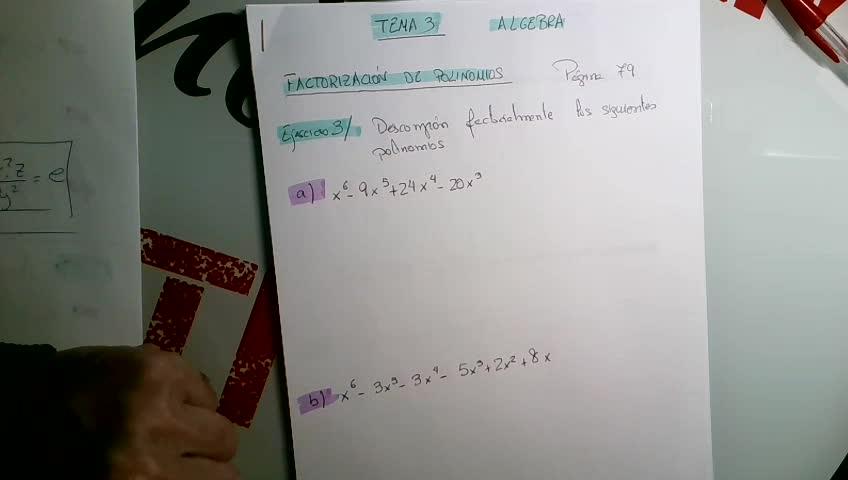 TEMA 3 ALGEBRA
FACTORIZACIÓN DE POLINOMIOS Página 79
Ejercicio 3/ Descompón factorialmente los siguientes
polinomios
a) x⁶ - 9x⁵ + 24x⁴ - 20x³
b) x⁶ - 3x⁵ - 3x⁴ - 5x³ + 2x² + 8x
= e